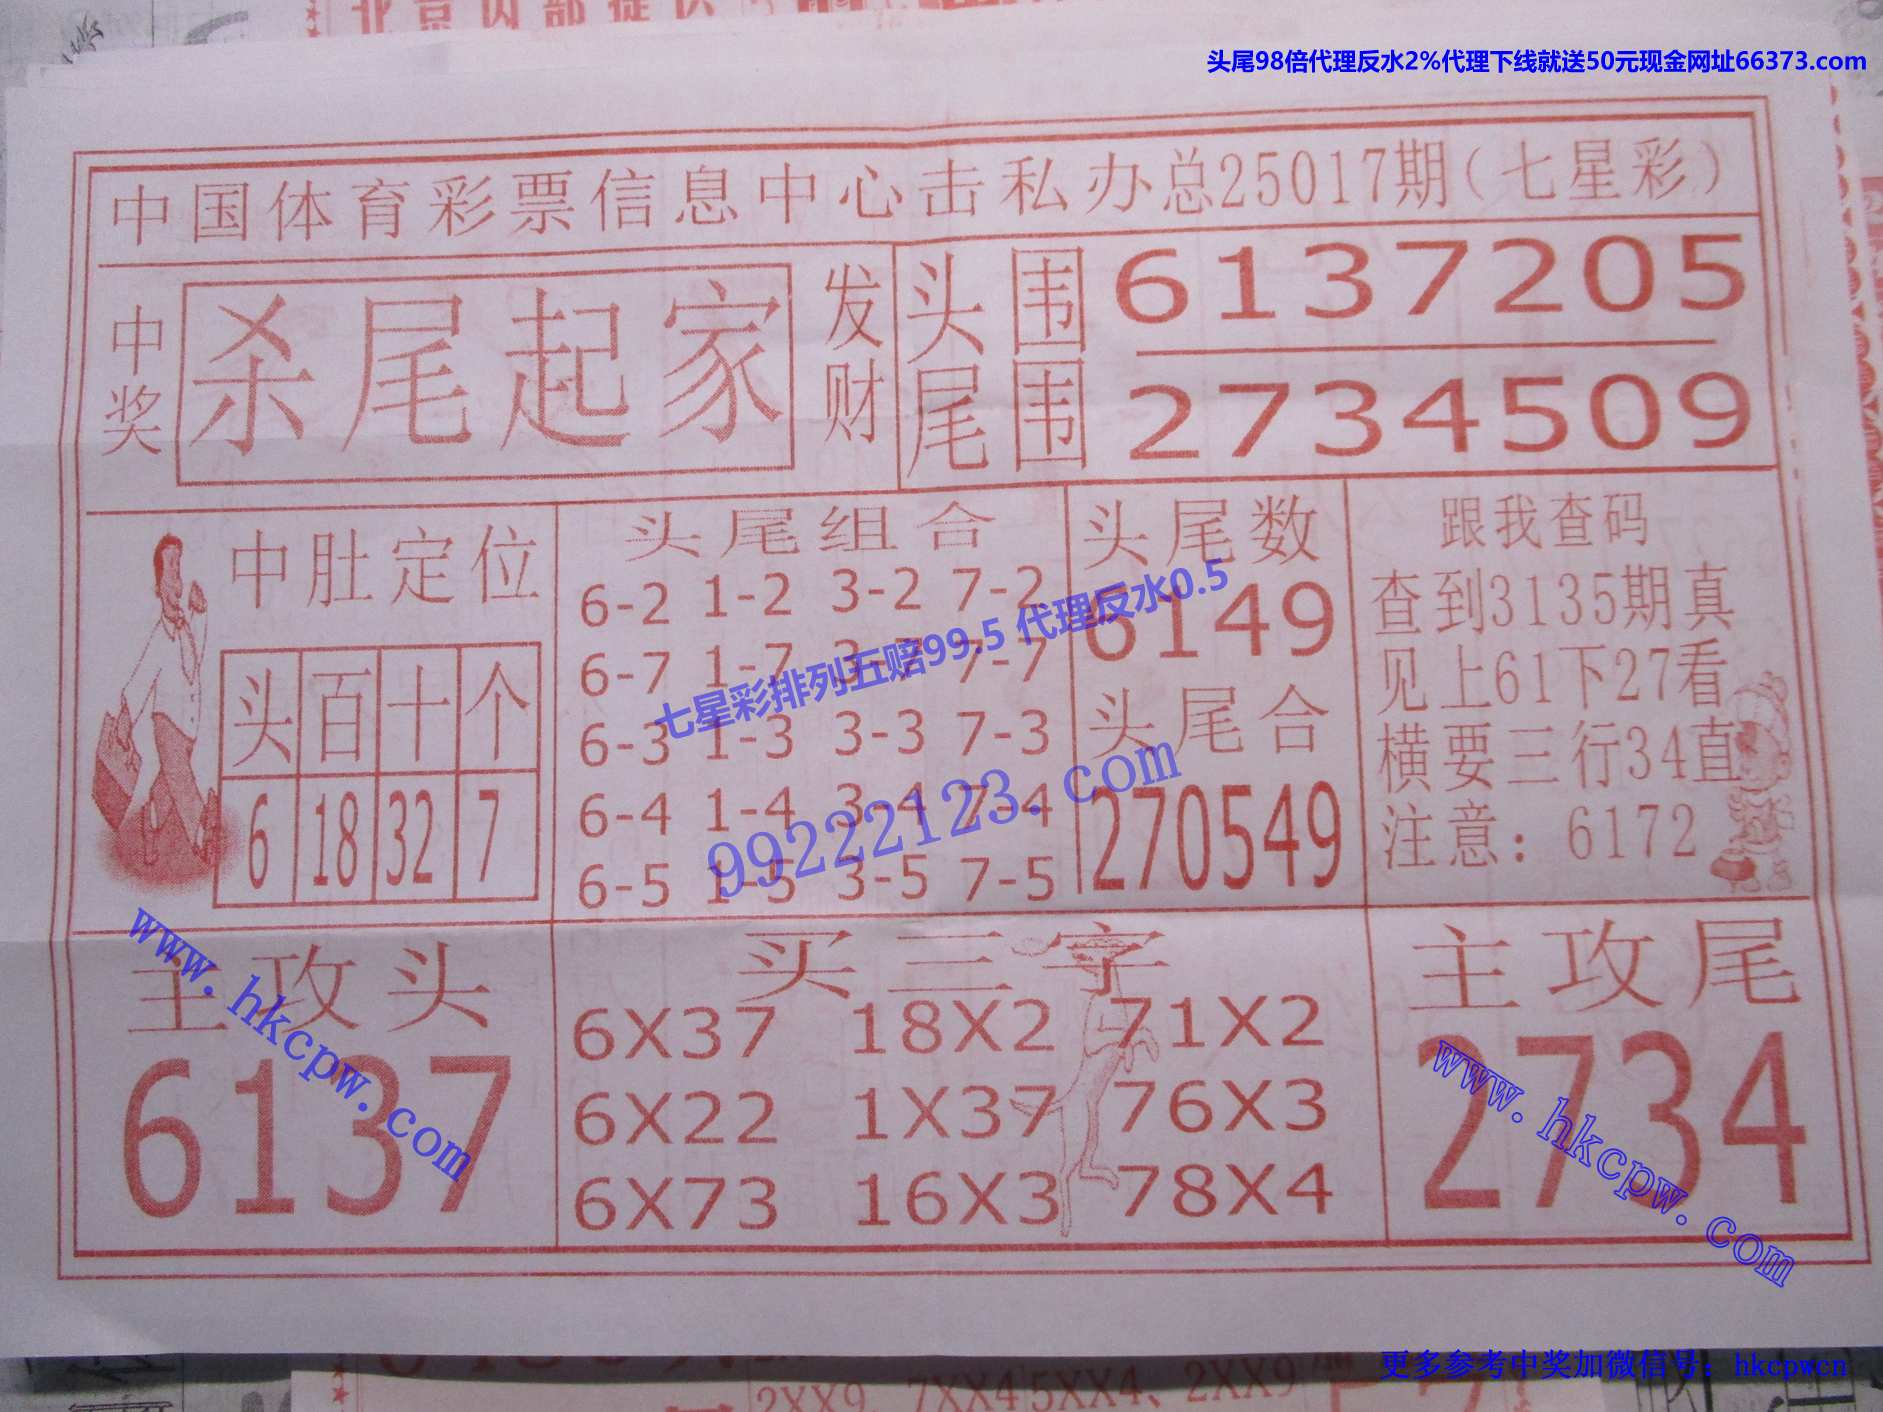 北京内部提供
头尾98倍代理反水2%代理下线就送50元现金网址66373.com
中国体育彩票信息中心击私办总25017期(七星彩)
中奖
杀尾起家
发财
头围 6137205
尾围 2734509
中肚定位
头 百 十 个
6 18 32 7
头尾组合
6-2 1-2 3-2 7-2
6-7 1-7 3-7 7-7
6-3 1-3 3-3 7-3
6-4 1-4 3-4 7-4
6-5 1-5 3-5 7-5
头尾数
6149
头尾合
270549
跟我查码
查到3135期真
见上61下27看
横要三行34直
注意：6172
七星彩排列五赔99.5 代理反水0.5
99222123.com
主攻头
6137
www.hkcpw.com
买三字
6X37 18X2 71X2
6X22 1X37 76X3
6X73 16X3 78X4
主攻尾
2734
www.hkcpw.com
更多参考中奖加微信号：hkcpwcn
2XX9、7XX4 5XX4、2XX9